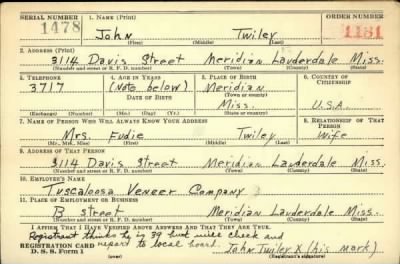 SERIAL NUMBER 1. NAME (Print) ORDER NUMBER
1478 John Twiley 1181
(First) (Middle) (Last)
2. ADDRESS (Print)
3114 Davis Street Meridian Lauderdale Miss.
(Number and street or R. F. D. number) (Town) (County) (State)
3. TELEPHONE 4. AGE IN YEARS 5. PLACE OF BIRTH 6. COUNTRY OF CITIZENSHIP
3717 (Note below) Meridian
DATE OF BIRTH (Town or county)
Miss. U.S.A.
(Exchange) (Number) (Mo.) (Day) (Yr.) (State or country)
7. NAME OF PERSON WHO WILL ALWAYS KNOW YOUR ADDRESS 8. RELATIONSHIP OF THAT PERSON
Mrs. Eudie Twiley Wife
(Mr., Mrs., Miss) (First) (Middle) (Last)
9. ADDRESS OF THAT PERSON
3114 Davis Street Meridian Lauderdale Miss.
(Number and street or R. F. D. number) (Town) (County) (State)
10. EMPLOYER'S NAME
Tuscaloosa Veneer Company
11. PLACE OF EMPLOYMENT OR BUSINESS
B Street Meridian Lauderdale Miss.
(Number and street or R. F. D. number) (Town) (County) (State)
I AFFIRM THAT I HAVE VERIFIED ABOVE ANSWERS AND THAT THEY ARE TRUE.
Registrant thinks he is 39 but will check and
REGISTRATION CARD report to local board. John Twiley X (his mark)
D. S. S. Form 1 (over) (Registrant's signature)